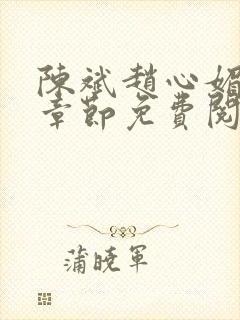 陳斌趙心媚
章節免費閱
蒲曉軍